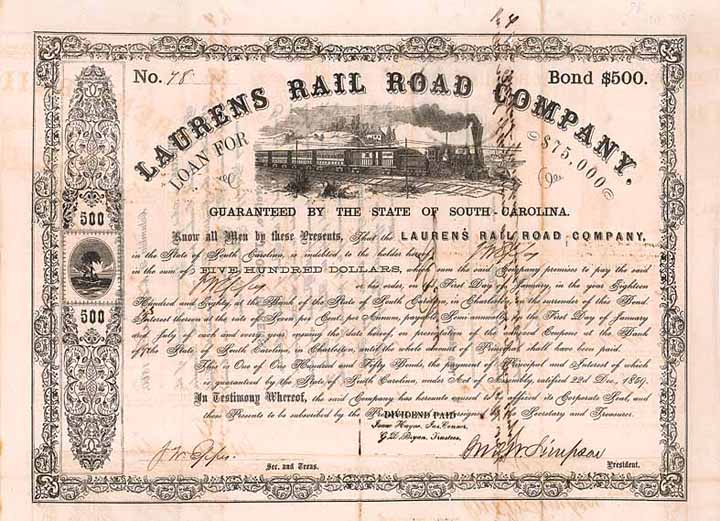 No. 78
Bond $500.
LAURENS RAIL ROAD COMPANY.
LOAN FOR
$75,000
GUARANTEED BY THE STATE OF SOUTH-CAROLINA.
500
500
Know all Men by these Presents, That the LAURENS RAIL ROAD COMPANY,
in the State of South Carolina, is indebted to the holder hereof
in the sum of FIVE HUNDRED DOLLARS, which sum the said Company promises to pay the said
or his order, on the First Day of January, in the year Eighteen
Hundred and Eighty, at the Bank of the State of South Carolina, in Charleston, on the surrender of this Bond.
Interest thereon at the rate of Seven per Cent. per Annum, payable Semi-annually, on the First Day of January
and July of each and every year, ensuing the date hereof on presentation of the annexed Coupons at the Bank
of the State of South Carolina, in Charleston, until the whole amount of Principal shall have been paid.
This is One of One Hundred and Fifty Bonds, the payment of Principal and Interest of which
is guaranteed by the State of South Carolina, under Act of Assembly, ratified 22d Dec., 1859.
In Testimony Whereof, the said Company has hereunto caused to be affixed its Corporate Seal, and
these Presents to be subscribed by the by the Secretary and Treasurer.
DIVIDEND PAID
Isaac Hayne, Jas. Conner,
G. D. Bryan, Trustees.
Simpson
Sec. and Treas.
President.